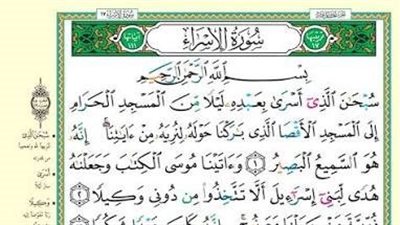 سُورَةُ الإِسْرَاءِ
بِسْمِ اللَّهِ الرَّحْمَٰنِ الرَّحِيمِ
سُبْحَٰنَ ٱلَّذِىٓ أَسْرَىٰ بِعَبْدِهِۦ لَيْلًا مِّنَ ٱلْمَسْجِدِ ٱلْحَرَامِ
إِلَى ٱلْمَسْجِدِ ٱلْأَقْصَا ٱلَّذِى بَٰرَكْنَا حَوْلَهُۥ لِنُرِيَهُۥ مِنْ ءَايَٰتِنَآ ۚ إِنَّهُۥ
هُوَ ٱلسَّمِيعُ ٱلْبَصِيرُ ١ وَءَاتَيْنَا مُوسَى ٱلْكِتَٰبَ وَجَعَلْنَٰهُ
هُدًى لِّبَنِىٓ إِسْرَٰٓءِيلَ أَلَّا تَتَّخِذُوا۟ مِن دُونِى وَكِيلًا ٢